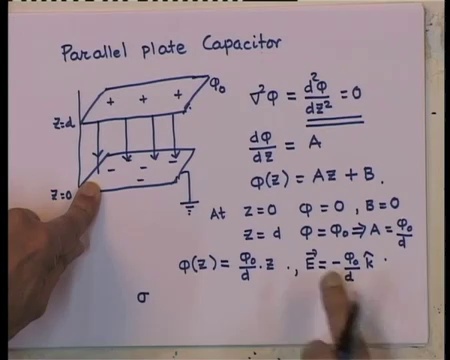 Parallel plate Capacitor
φ₀
+ + +
z=d
- - - -
z=0
∇²φ = d²φ/dz² = 0
dφ/dz = A
φ(z) = Az + B.
At z=0 φ=0, B=0
z=d φ=φ₀ ⇒ A = φ₀/d
φ(z) = φ₀/d . z . , E⃗ = - φ₀/d k̂ .
σ